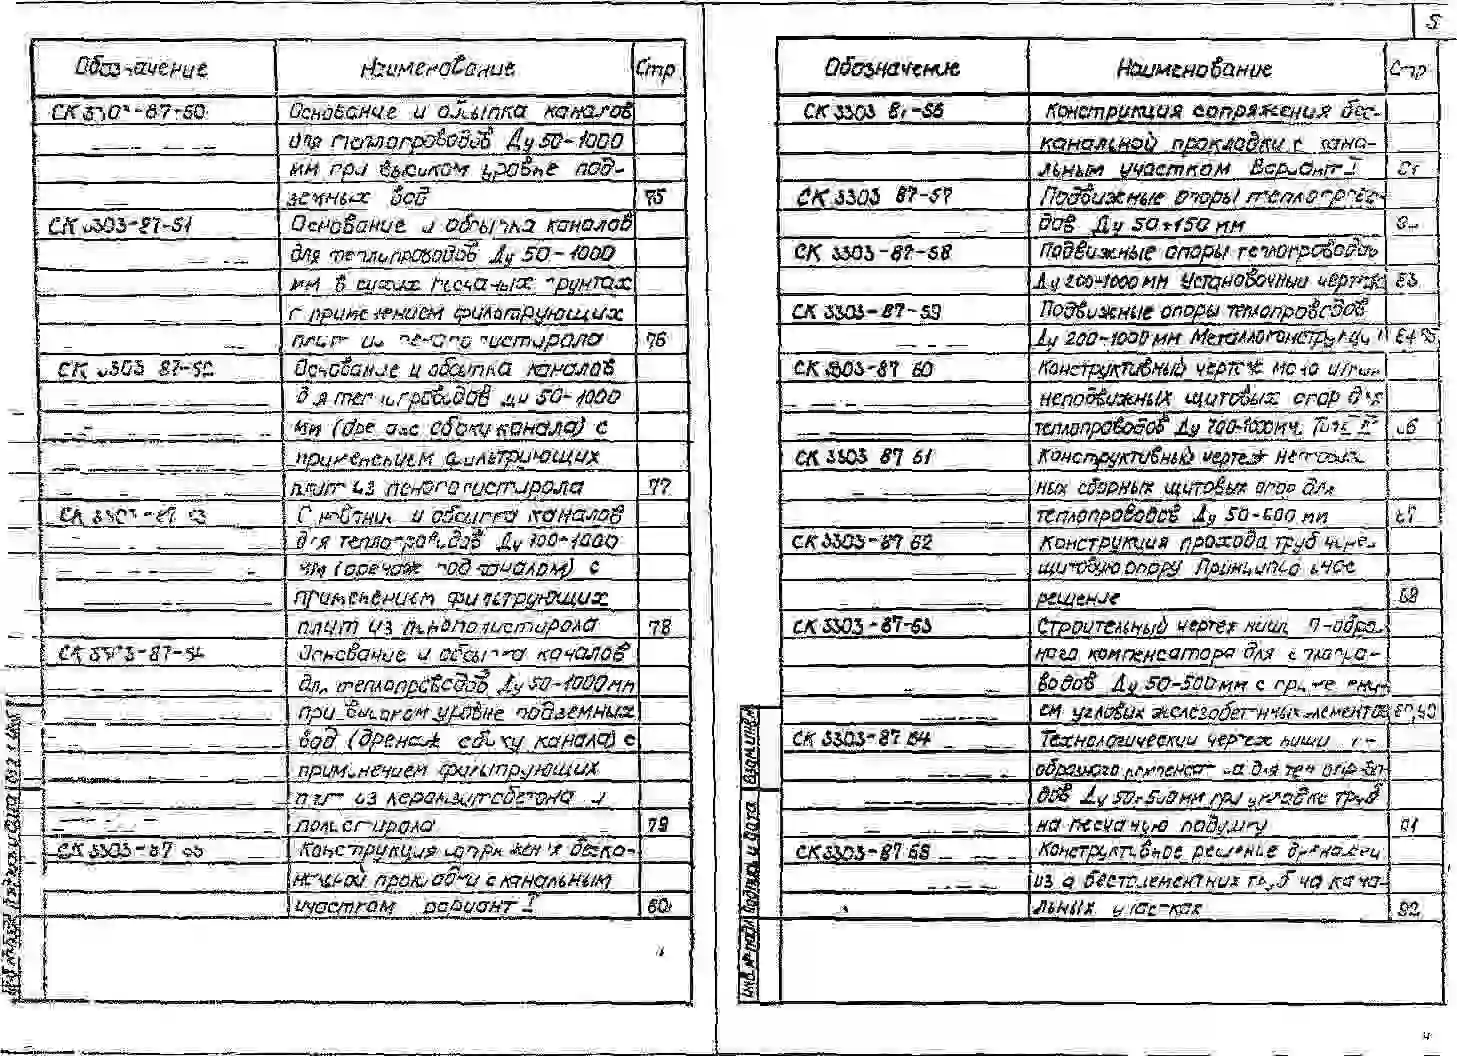 5
Обозначение Наименование Стр
СК 3303-87-50 Основание и обсыпка каналов
для теплопроводов Ду 50-1000
мм при высоком уровне под-
земных вод 75
СК 3303-87-51 Основание и обсыпка каналов
для теплопроводов Ду 50-1000
мм в сухих песчаных грунтах
с применением фильтрующих
плит из пенополистирола 76
СК 3303 87-52 Основание и обсыпка каналов
для теплопроводов Ду 50-1000
мм (дренаж сбоку канала) с
применением фильтрующих
плит из пенополистирола 77
СК 3303-87 53 Основание и обсыпка каналов
для теплопроводов Ду 700-1000
мм (дренаж под каналом) с
применением фильтрующих
плит из пенополистирола 78
СК 3303-87-54 Основание и обсыпка каналов
для теплопроводов Ду 50-1000мм
при высоком уровне подземных
вод (дренаж сбоку канала) с
применением фильтрующих
плит из керамзитобетона и
полистирола 79
СК 3303-87 55 Конструкция сопряжения беска-
нальной прокладки с канальным
участком вариант I 80
Обозначение Наименование Стр
СК 3303 87-56 Конструкция сопряжения бес-
канальной прокладки с кана-
льным участком Вариант I
СК 3303 87-57 Подвижные опоры теплопрово-
дов Ду 50÷150 мм
СК 3303-87-58 Подвижные опоры теплопроводов
Ду 200-1000 мм Установочный чертеж 83
СК 3303-87-59 Подвижные опоры теплопроводов
Ду 200-1000 мм Металлоконструкции 84 85
СК 3303-87 60 Конструктивный чертеж
неподвижных щитовых опор для
теплопроводов Ду 700-1000мм. Тип 86
СК 3303 87 61 Конструктивный чертеж
ных сборных щитовых опор для
теплопроводов Ду 50-600 мм 87
СК 3303-87 62 Конструкция прохода труб через
щитовую опору Принципиальное
решение 88
СК 3303-87-63 Строительный чертеж ниши П-образ-
ного компенсатора для теплопро-
водов Ду 50-500мм с применени-
ем угловых железобетонных элементов 89,90
СК 3303-87 64 Технологический чертеж ниши П-
образного компенсатора для теплопрово-
дов Ду 50-500мм при укладке труб
на песчаную подушку 91
СК 3303-87 68 Конструктивное решение дренажей
из асбестоцементных труб на кана-
льных участках 92
Инв.№ подл Подпись и дата Взам инв.№
4